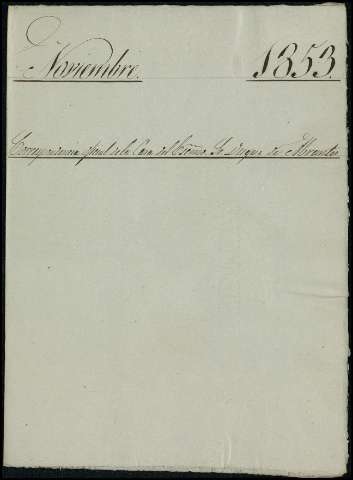 Noviembre. 1853.
Correspondencia oficial de la Casa del Excmo. Sr. Duque de Abrantes